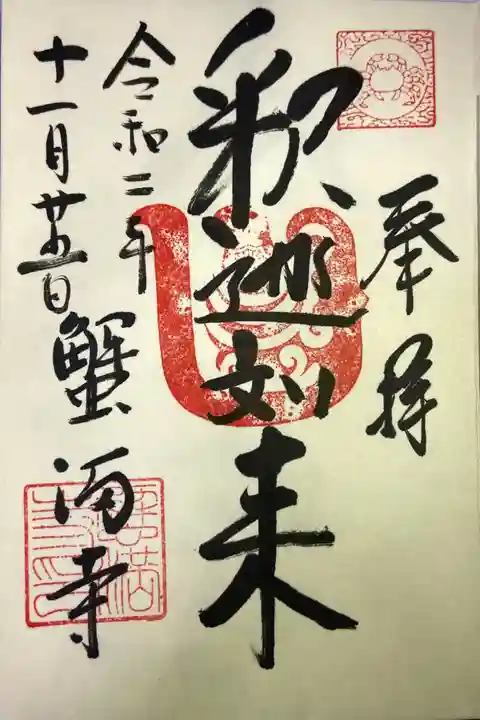 奉拝
釈迦如来
令和二年
十一月廿五日
蟹満寺